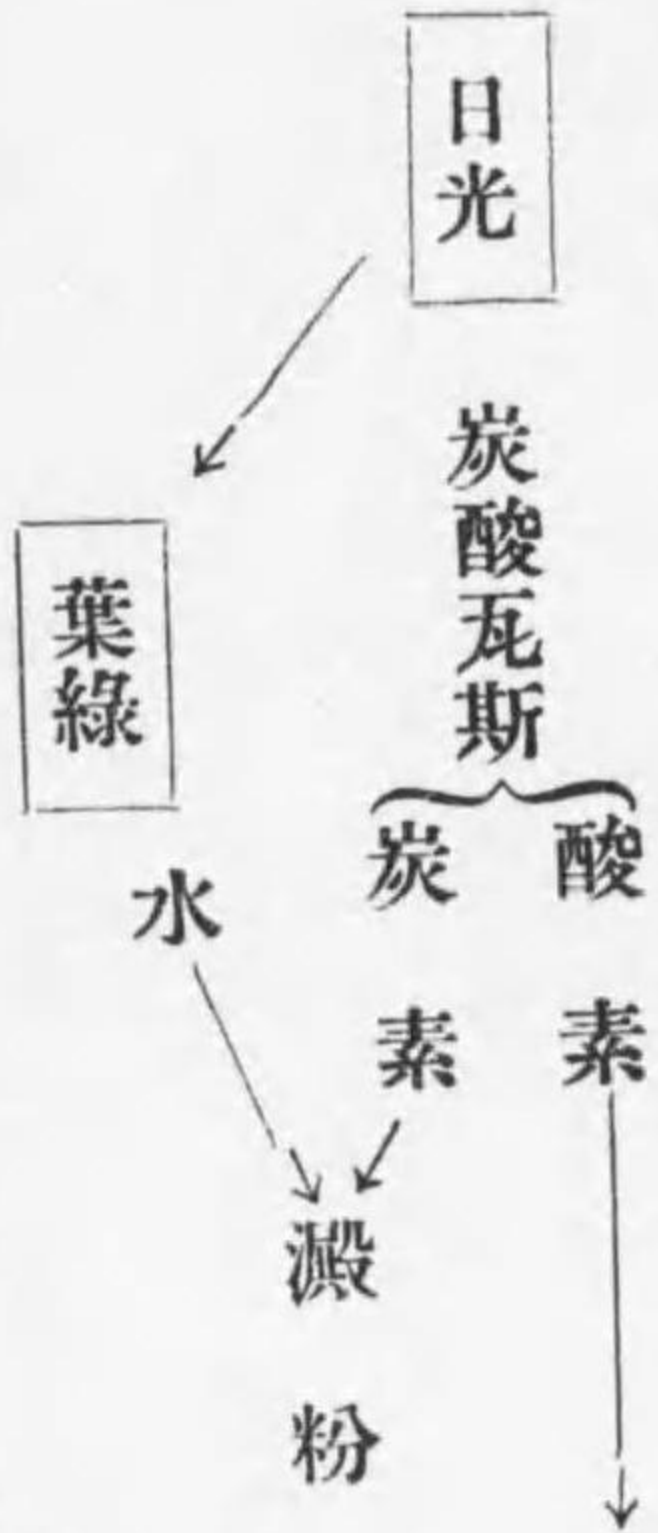 日光
炭酸瓦斯
酸素
炭素
葉綠
水
澱粉